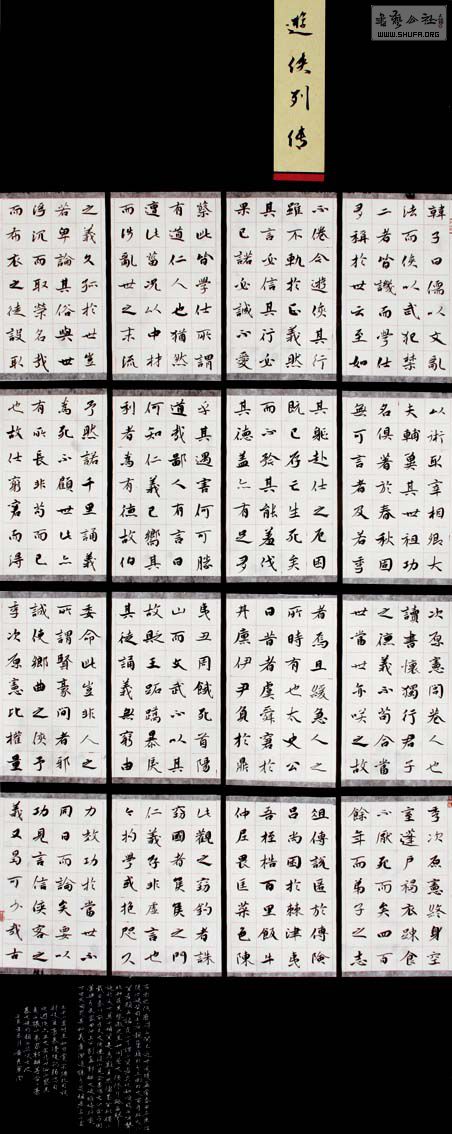 遊俠列传
韓子曰儒以文亂
法而俠以武犯禁
二者皆譏而學仕
多稱於世云至如
以術取宰相卿大
夫輔翼其世祖功
名俱著於春秋固
無可言者及若季
次原憲閭巷人也
讀書懷獨行君子
之德義不苟合當
世當世亦咲之故
季次原憲終身空
室蓬戶褐衣疎食
不厭死而矣四百
餘年而弟子之志
不倦今遊俠其行
雖不軌於正義然
其言必信其行必
果已諾必誠不愛
其軀赴仕之厄困
既已存亡生死矣
而不矜其能羞伐
其德蓋亦有足多
者焉且緩急人之
所時有也太史公
曰昔者虞舜窘於
井廩伊尹負於鼎
俎傅說匿於傅險
呂尚困於棘津夷
吾桎梏百里飯牛
仲尼畏匡菜色陳
蔡此皆學仕所謂
有道仁人也猶然
遭此菑況以中材
而涉亂世之末流
乎其遇害何可勝
道哉鄙人有言曰
何知仁義已嚮其
利者為有德故伯
夷丑周餓死首陽
山而文武不以其
故貶王跖蹻暴戾
其徒誦義無窮由
此觀之竊鉤者誅
竊國者侯侯之門
仁義存非虛言也
今拘學或抱咫尺
之義久孤於世豈
若卑論其俗與世
浮沉而取榮名哉
而布衣之徒設取
予然諾千里誦義
為死不顧世此亦
有所長非苟而已
也故仕窮窘而得
委命此豈非人之
所謂賢豪間者邪
誠使鄉曲之俠予
季次原憲比權量
力效功於當世不
同日而論矣要以
功見言信俠客之
義又曷可少哉古
WWW.SHUFA.ORG